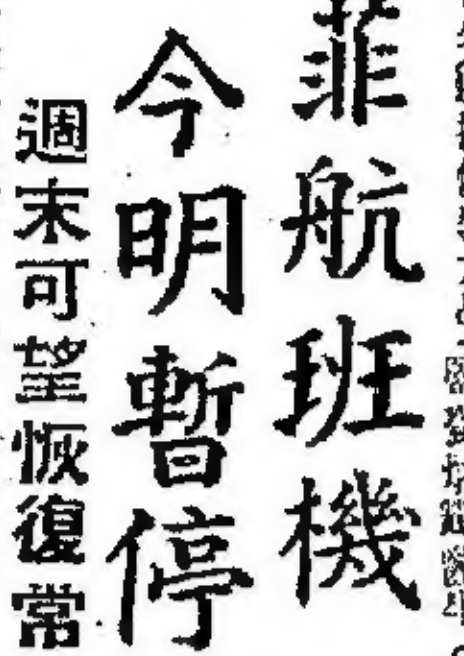 菲航班機
今明暫停
週末可望恢復常